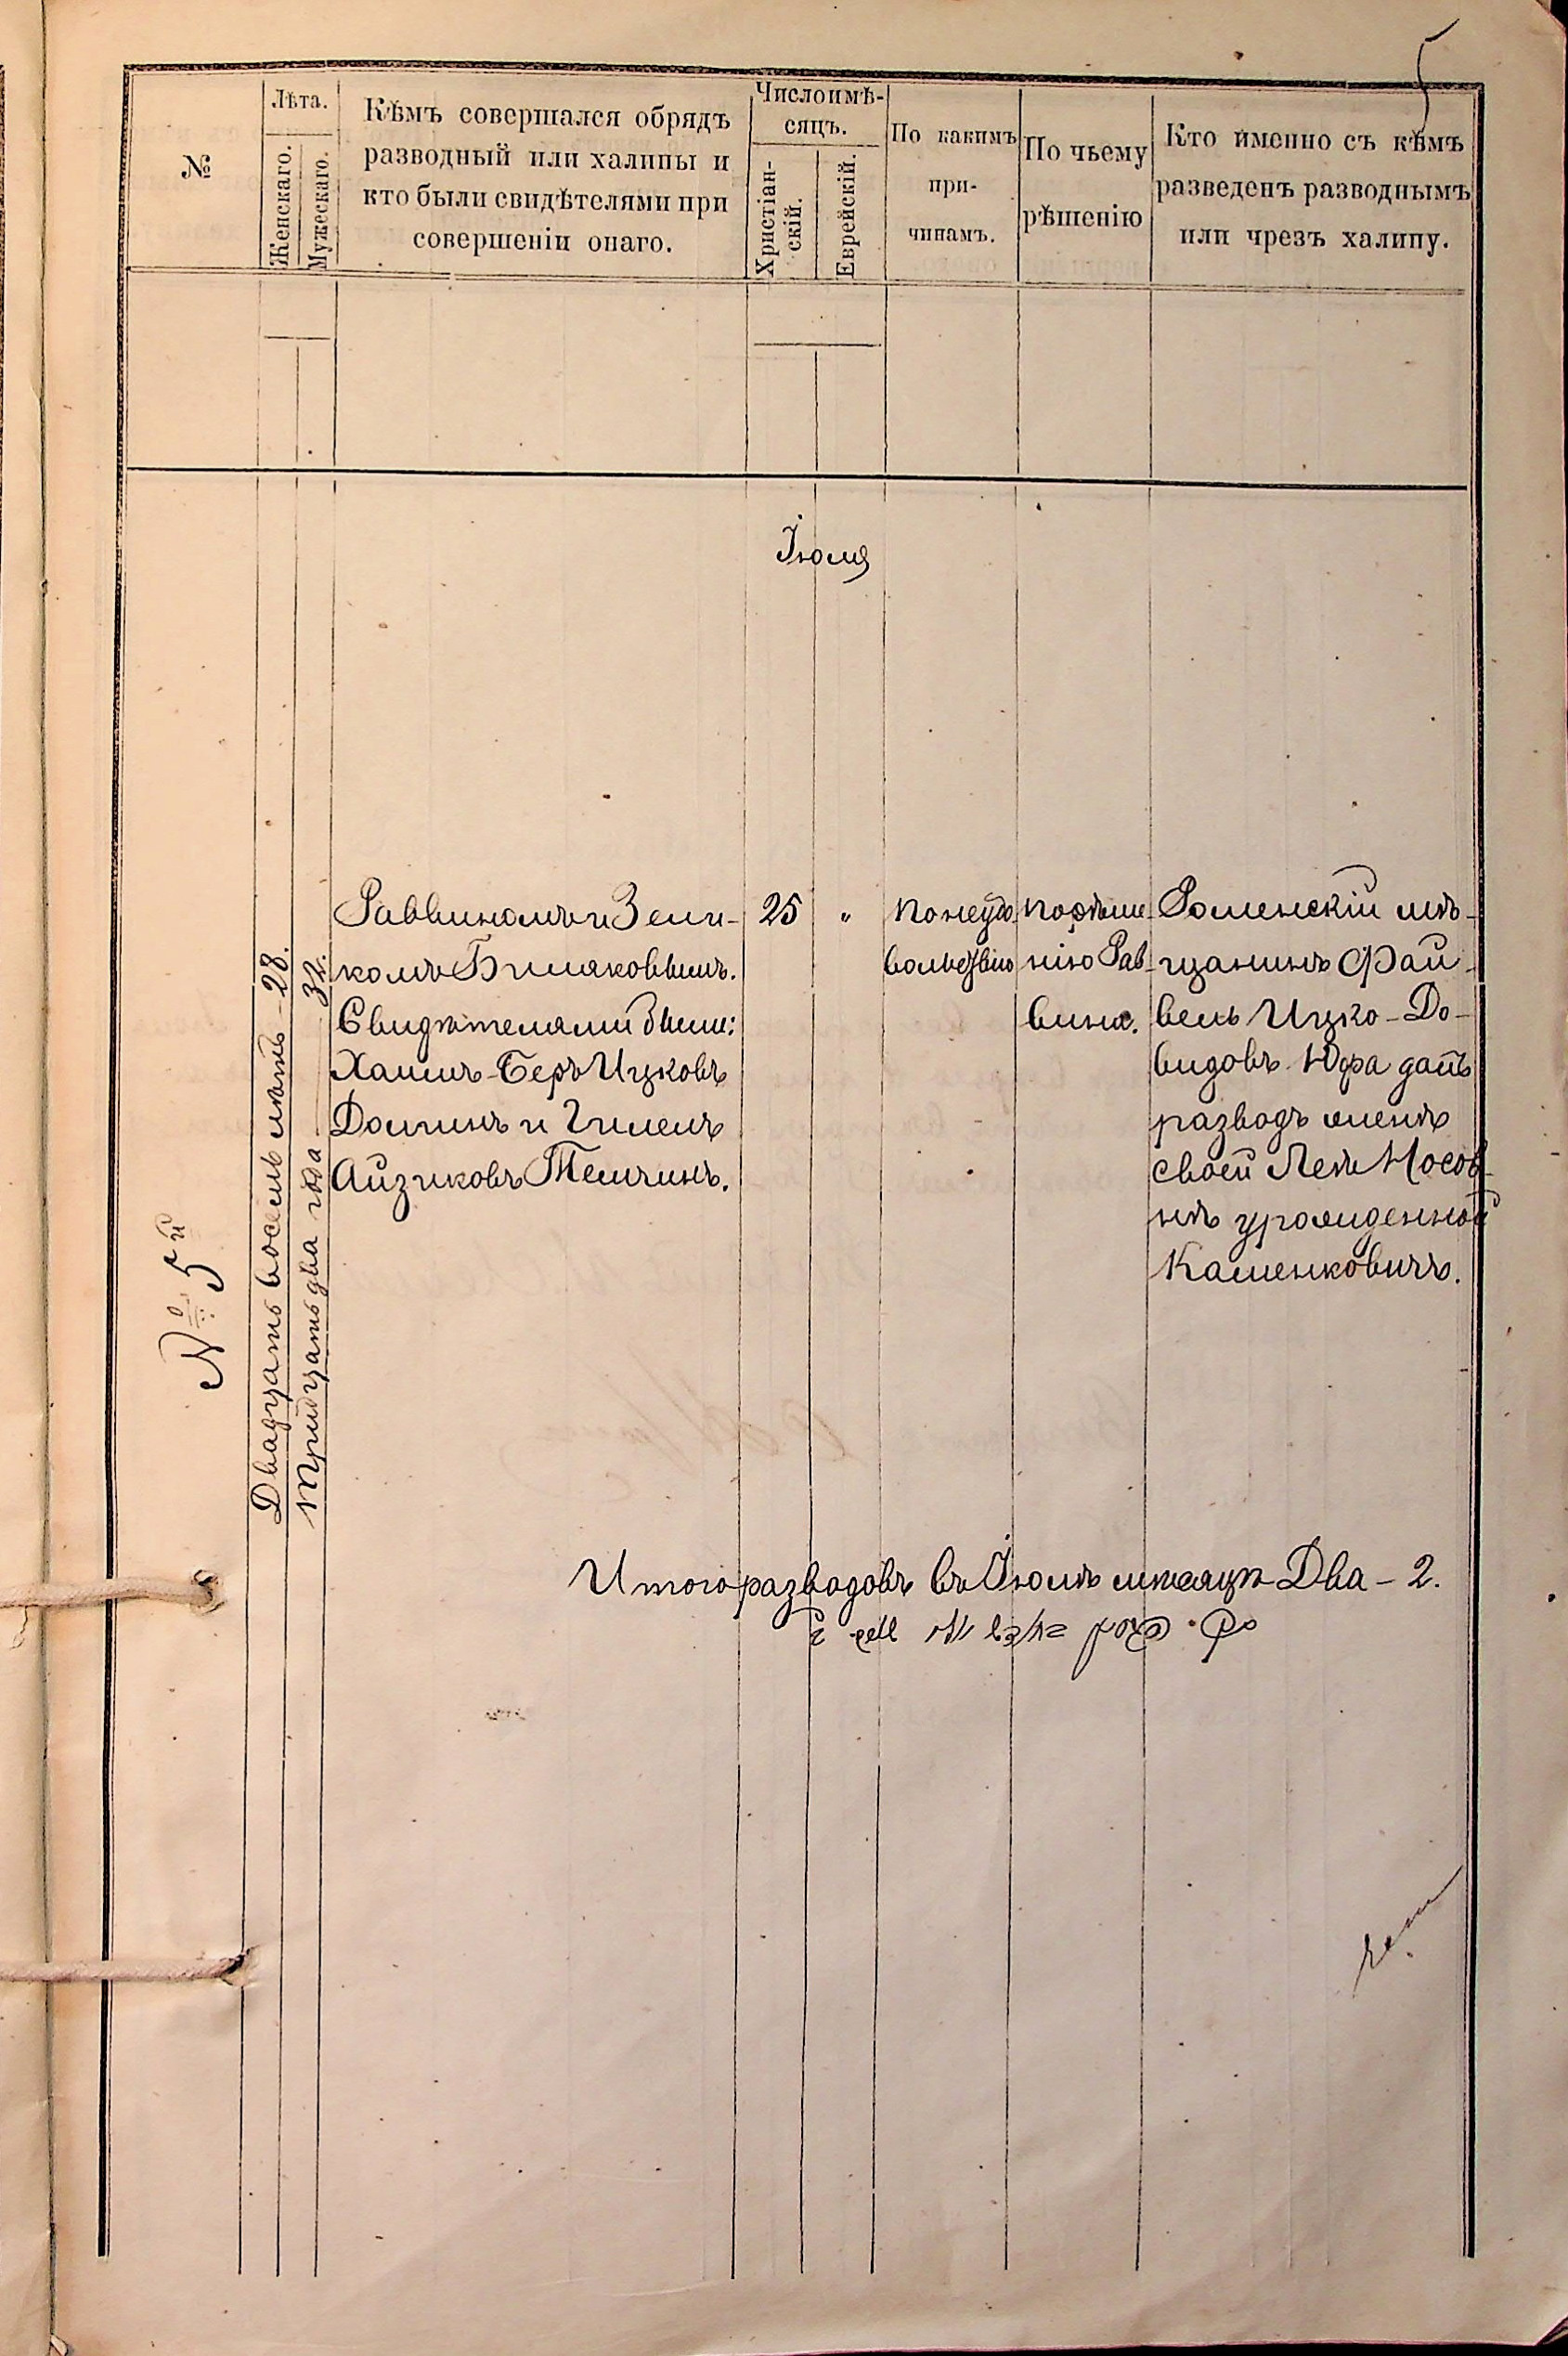 5
№
Лѣта.
Женскаго.
Мужескаго.
Кѣмъ совершался обрядъ
разводный или халицы и
кто были свидѣтелями при
совершеніи онаго.
Число и мѣ-
сяцъ.
Христіан-
скій.
Еврейскій.
По какимъ
при-
чинамъ.
По чьему
рѣшенію
Кто именно съ кѣмъ
разведенъ разводнымъ
или чрезъ халицу.
Іюля
№ 5й
Двадцать восемь лѣтъ - 28.
Тридцать два года 32.
Раввиномъ и Зели-
комъ Бумаковымъ.
Свидѣтелями были:
Хаимъ-Беръ Ицковъ
Долгинъ и Гилелъ
Айзиковъ Темчинъ.
25 "
по неудо
вольствію
по рѣше-
нію Рав-
вина.
Роменскій мѣ-
щанинъ Фай-
вель Ицко-До-
видовъ Юфа далъ
разводъ женѣ
своей Леѣ Носов-
нѣ урожденной
Каменковичъ.
Итого разводовъ въ Іюлѣ мѣсяцѣ Два - 2.